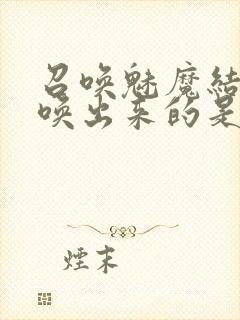 召唤魅魔结
唤出来的是
煙末